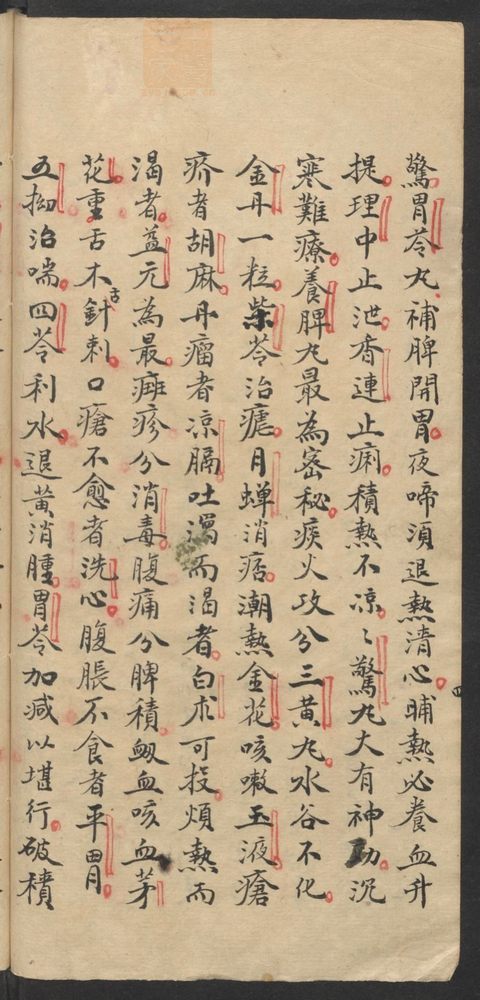 驚胃苓丸補脾開胃夜啼須退熱清心晡熱必養血升
提理中止泄香連止痢積熱不凉〻驚丸大有神功沉
寒難療養脾丸最為宻秘痰火攻分三黄丸水谷不化
金丹一粒柴苓治瘧月蟬消痞潮熱金花咳嗽玉液瘡
疥者胡麻丹瘤者凉膈吐瀉而渴者白朮可投煩熱而
渴者益元為最痲疹分消毒腹痛分脾積衂血咳血茅
花重舌木舌針刺口瘡不愈者洗心腹脹不食者平胃
五拗治喘四苓利水退黄消腫胃苓加减以堪行破積